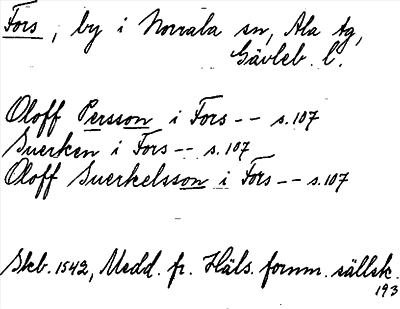 Fors, by i Norrala sn, Ala tg,
Gävleb. l.
Oloff Persson i Fors -- s. 107
Suerken i Fors -- s. 107
Oloff Suerkelsson i Fors -- s. 107
Skb. 1542, Medd. fr. Häls. fornm. sällsk.
193